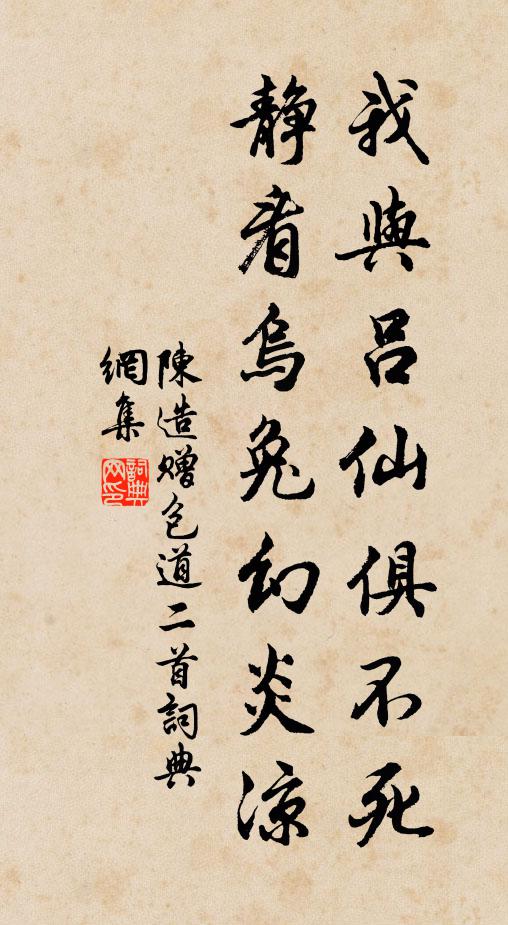 我與呂仙俱不死
静看烏兔幻炎涼
陳造贈包道二首詞典
網集
詞典网印